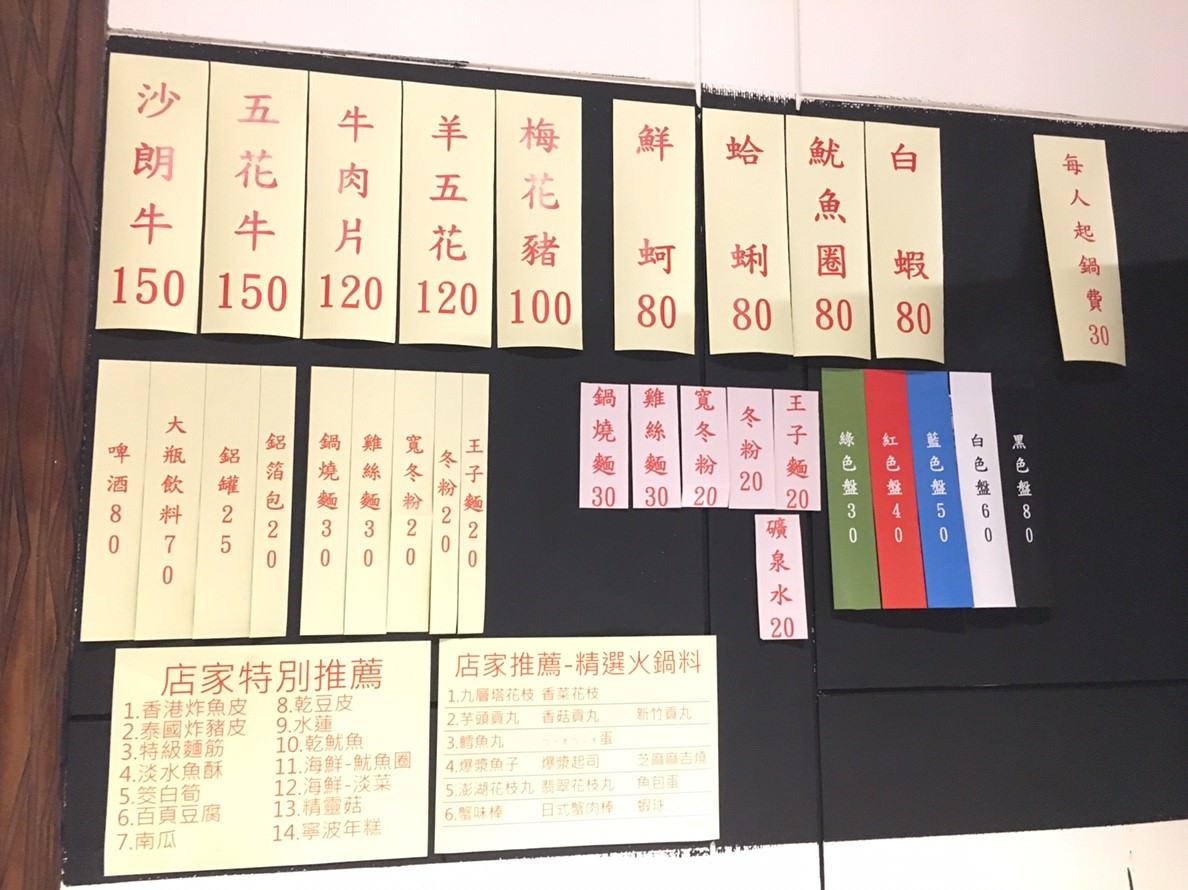 沙朗牛150
五花牛150
牛肉片120
羊五花120
梅花豬100
鮮蚵80
蛤蜊80
魷魚圈80
白蝦80
每人起鍋費30
啤酒80
大瓶飲料70
鋁罐25
鋁箔包20
鍋燒麵30
雞絲麵30
寬冬粉20
冬粉20
王子麵20
鍋燒麵30
雞絲麵30
寬冬粉20
冬粉20
王子麵20
礦泉水20
綠色盤30
紅色盤40
藍色盤50
白色盤60
黑色盤80
店家特別推薦
1.香港炸魚皮
2.泰國炸豬皮
3.特級麵筋
4.淡水魚酥
5.筊白筍
6.百頁豆腐
7.南瓜
8.乾豆皮
9.水蓮
10.乾魷魚
11.海鮮-魷魚圈
12.海鮮-淡菜
13.精靈菇
14.寧波年糕
店家推薦-精選火鍋料
1.九層塔花枝 香菜花枝
2.芋頭貢丸 香菇貢丸 新竹貢丸
3.鱈魚丸 蛋
4.爆漿魚子 爆漿起司 芝麻麻吉燒
5.澎湖花枝丸 翡翠花枝丸 魚包蛋
6.蟹味棒 日式蟹肉棒 蝦球